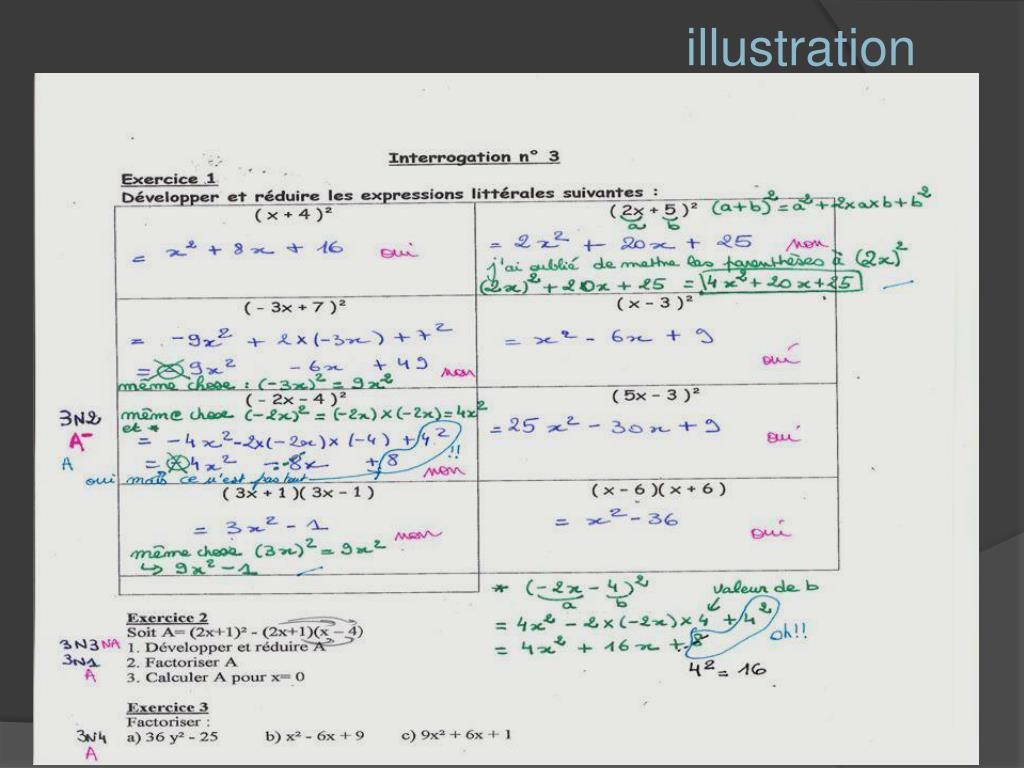 illustration
Interrogation n° 3
Exercice 1
Développer et réduire les expressions littérales suivantes :
( x + 4 )²
= x² + 8x + 16 oui
( 2x + 5 )² (a+b)² = a² + 2xaxb + b²
a b
= 2x² + 20x + 25 non
j'ai oublié de mettre les parenthèses à (2x)²
(2x)² + 20x + 25 = 4x² + 20x + 25
( - 3x + 7 )²
= -9x² + 2x(-3x) + 7²
= 9x² - 6x + 49 non
même chose : (-3x)² = 9x²
( x - 3 )²
= x² - 6x + 9
oui
( - 2x - 4 )²
3N2
A-
A
même chose (-2x)² = (-2x) x (-2x) = 4x²
et *
= -4x² - 2x(-2x) x (-4) + 4²
= 4x² - 8x + 8 !!
oui mais ce n'est pas tout non
( 5x - 3 )²
= 25x² - 30x + 9
oui
( 3x + 1 )( 3x - 1 )
= 3x² - 1 non
même chose (3x)² = 9x²
↳ 9x² - 1
( x - 6 )( x + 6 )
= x² - 36
oui
* (-2x - 4)² valeur de b
a b
= 4x² - 2x(-2x) x 4 + 4²
= 4x² + 16x + 8 oh!!
4² = 16
Exercice 2
Soit A= (2x+1)² - (2x+1)(x – 4)
3N3 NA 1. Développer et réduire A
3N1 2. Factoriser A
A 3. Calculer A pour x= 0
Exercice 3
Factoriser :
3N4 a) 36 y² - 25 b) x² - 6x + 9 c) 9x² + 6x + 1
A